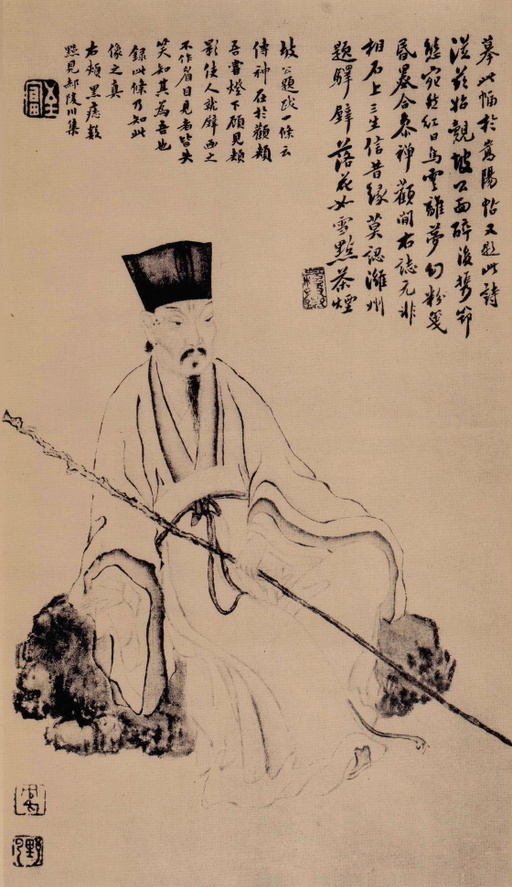 摹此幅於嵩陽帖又題此詩
從茲始覿坡公面醉後攜筇
態宛然紅日烏雲離夢幻粉箋
昏墨合參禪顴間右誌元非
相石上三生信昔緣莫認濰州
題驛壁落花如雪颭茶煙
坡公題跋一條云
傳神在於顴頰
吾嘗燈下顧見頰
影使人就壁畫之
不作眉目見者皆失
笑知其為吾也
錄此條乃知此
像之真
右頰黑痣數
點見郝陵川集